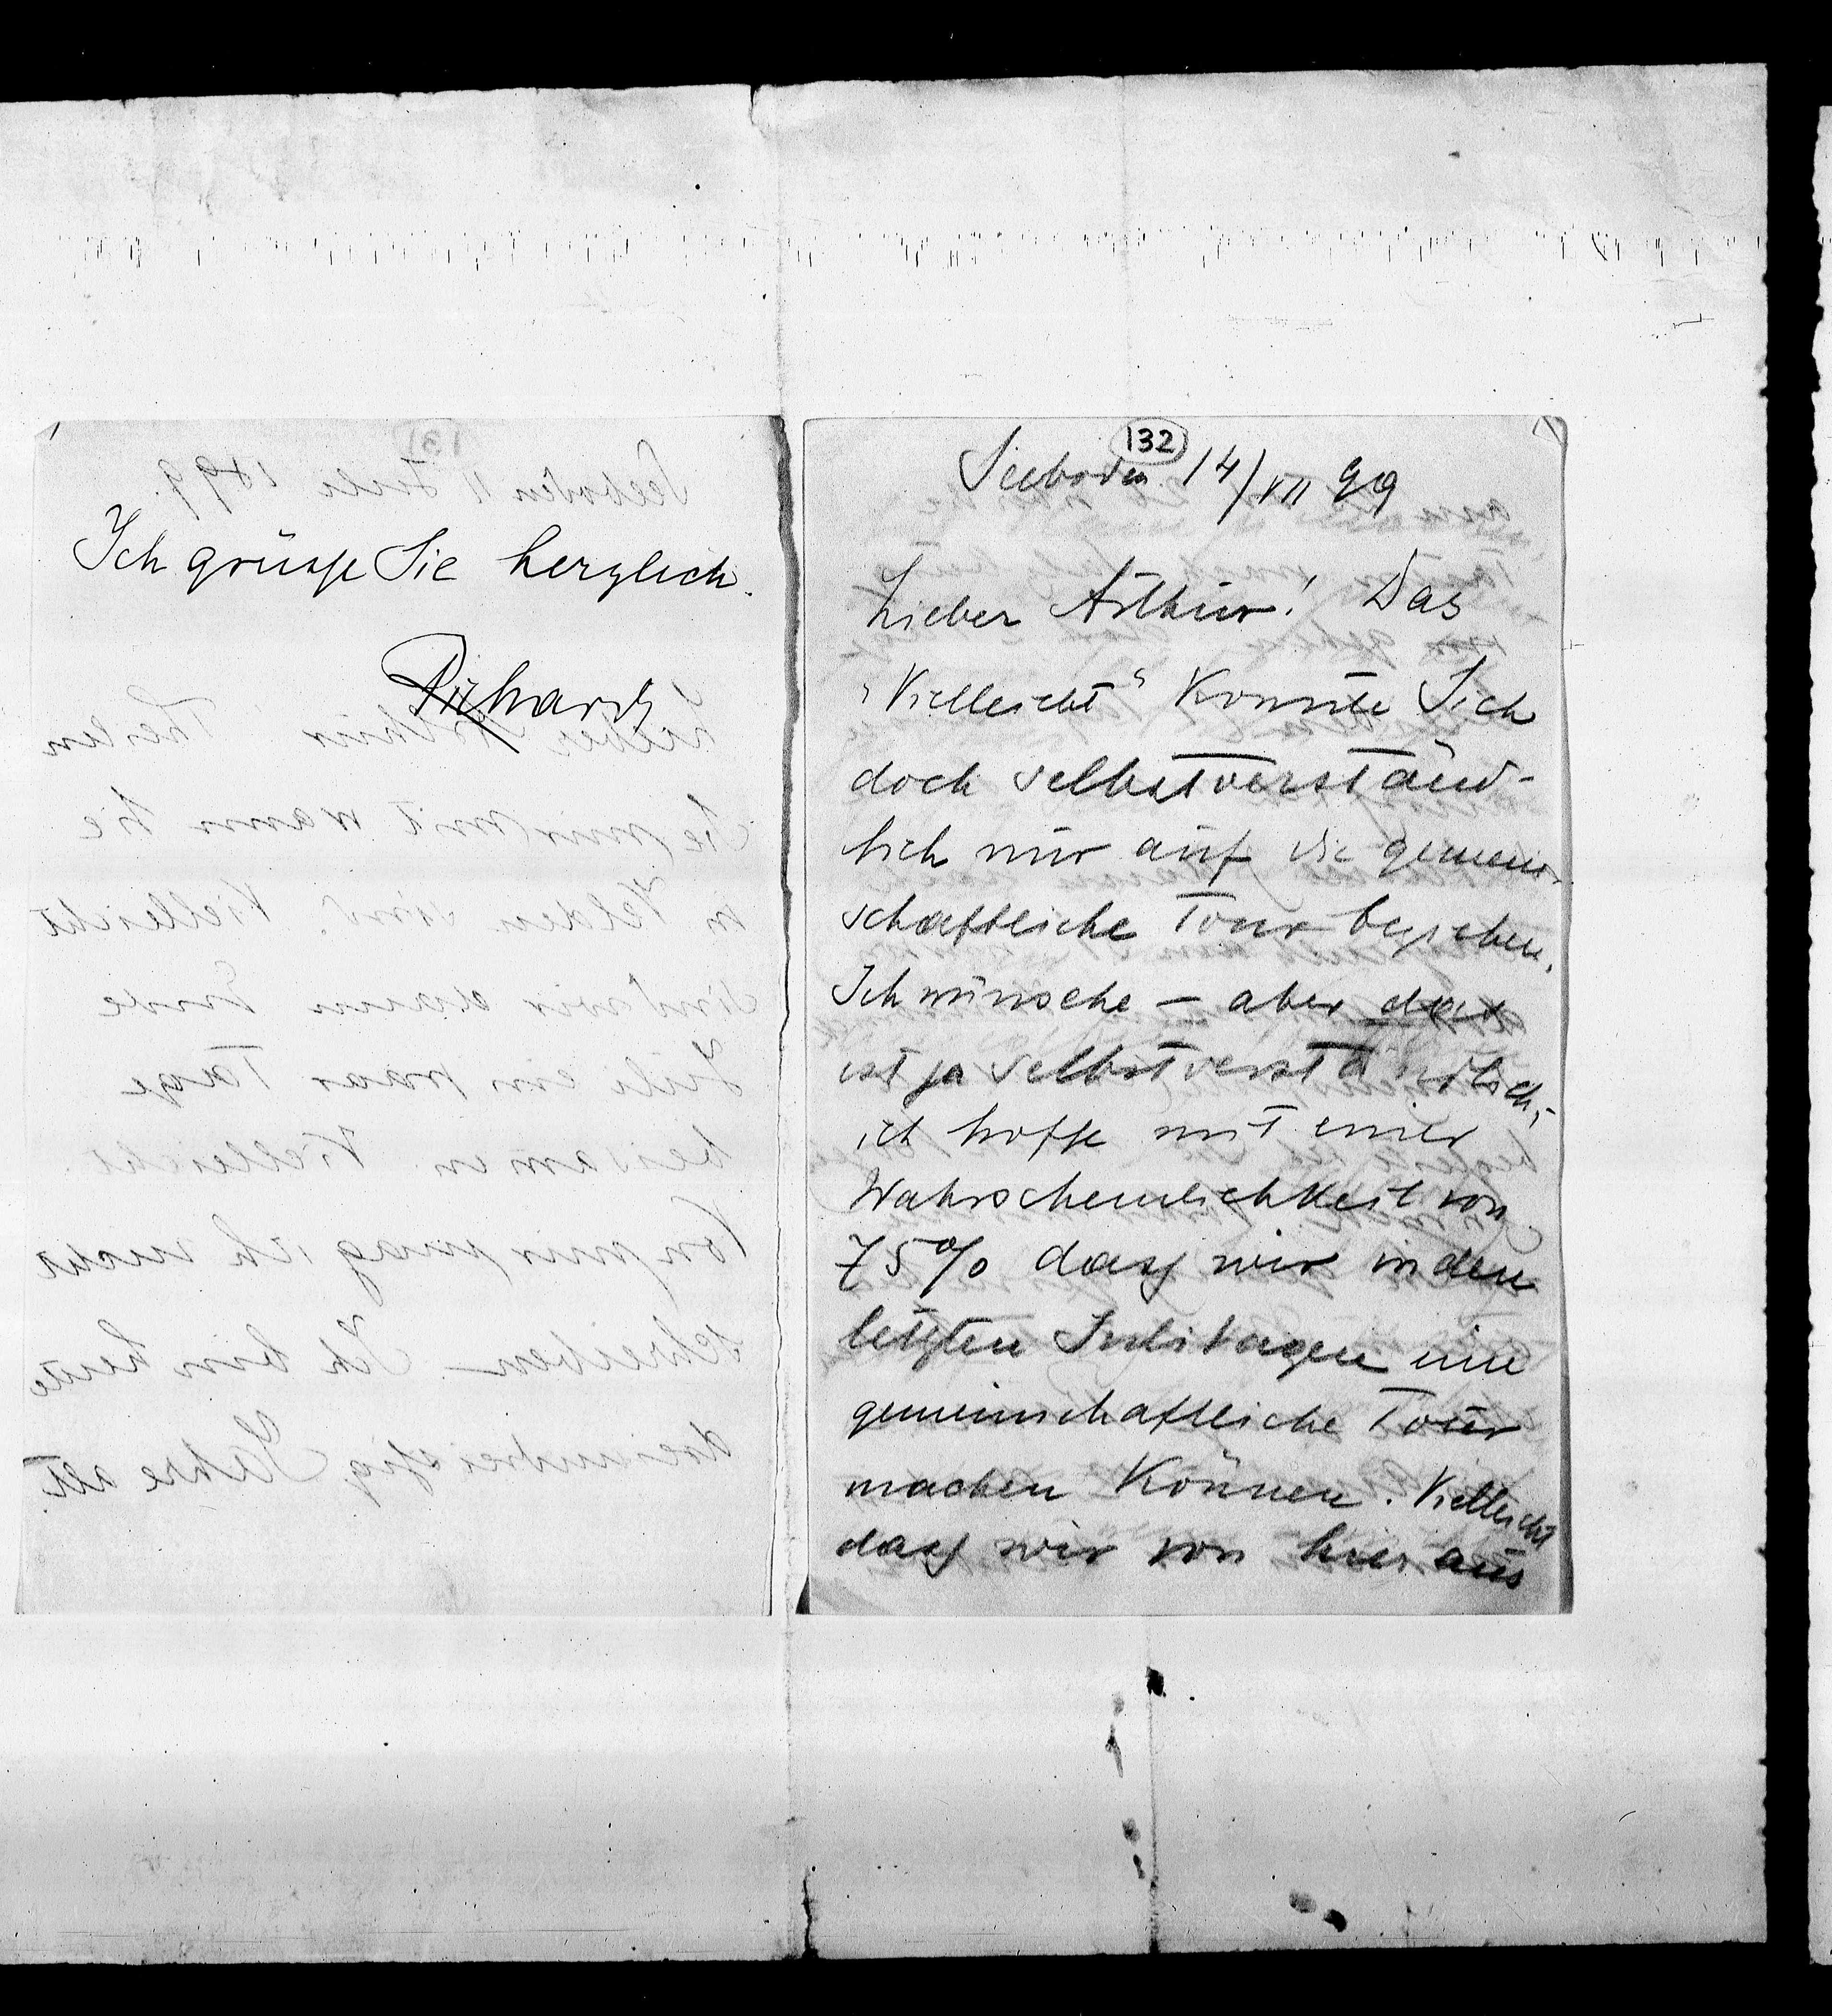 Ich grüsse Sie herzlich.
Richard
132
Seeboden 14/VII 99
Lieber Arthur! Das
"Vielleicht" konnte Sich
doch selbstverständ-
lich nur auf die gemein-
schaftliche Tour beziehen.
Ich wünsche – aber das
ist ja selbstverständlich;
ich hoffe mit einer
Wahrscheinlichkeit von
75% dass wir in den
letzten Julitagen eine
gemeinschaftliche Tour
machen können. Vielleicht
dass wir von hier aus